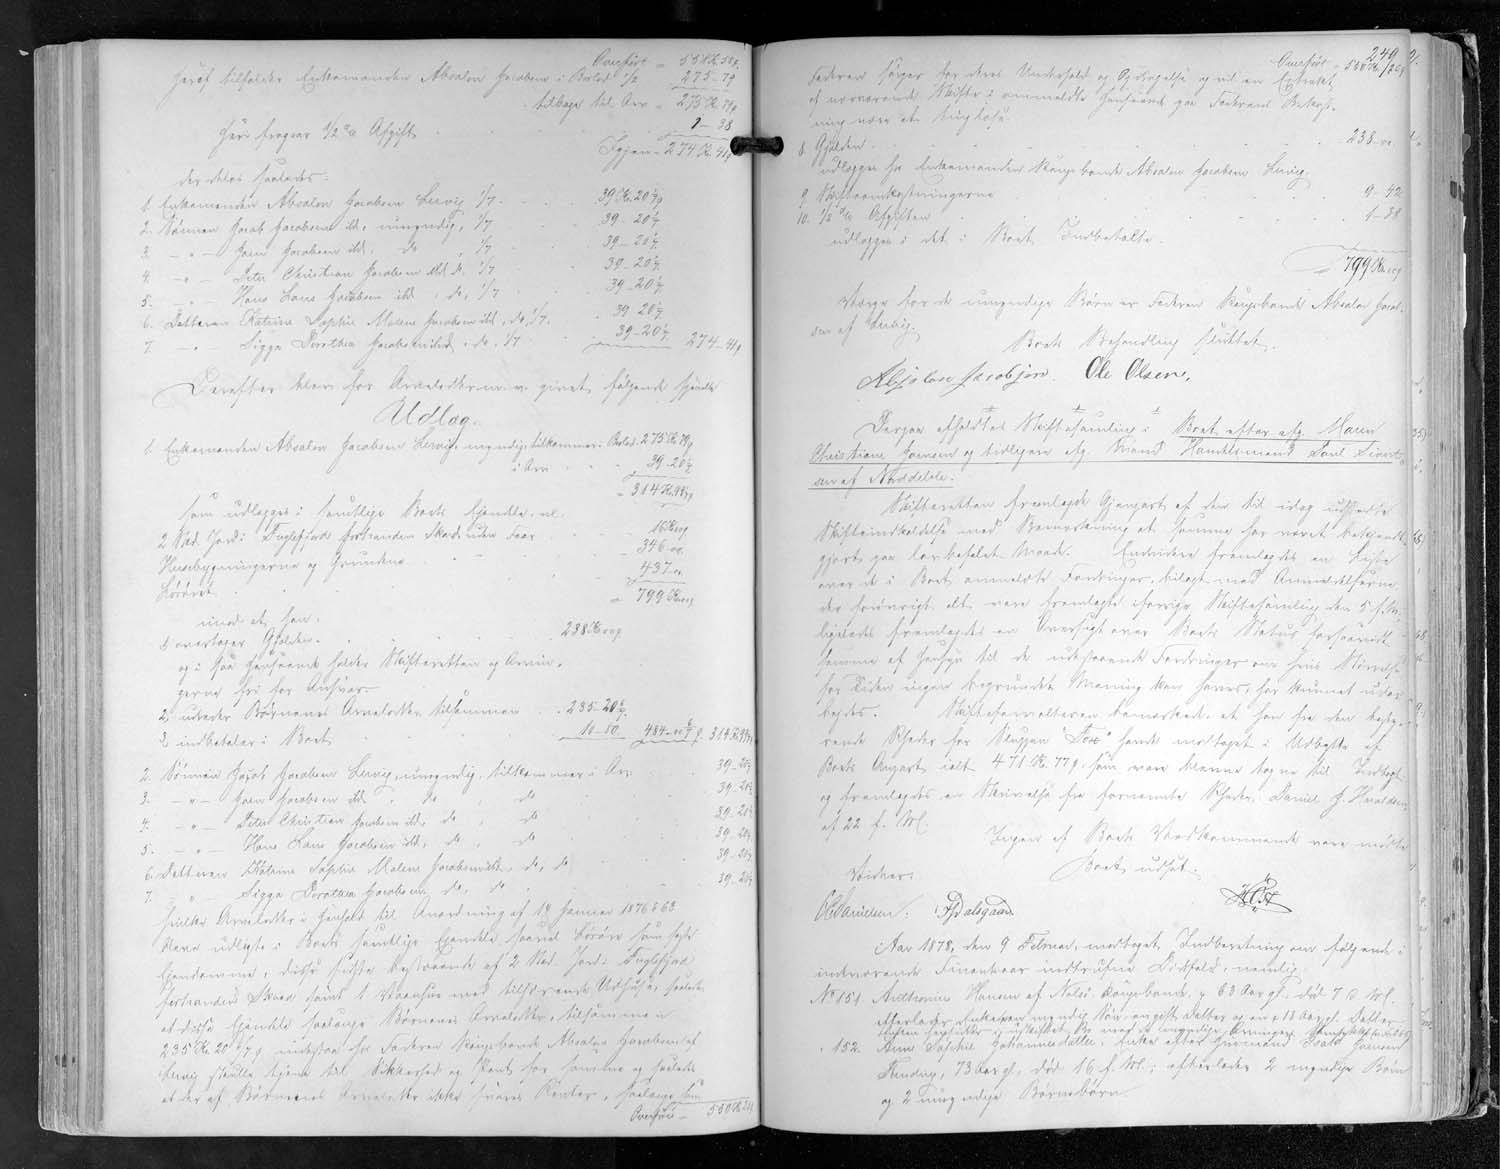 Overført = 558 Kr. 50 ø.
Heraf tilfalder Enkemanden Absalon Jacobsen i Boslod 1/2 275 - 79
tilbage til Arv = 275 Kr. 79 ø
herfra fragaar 1/2 % Afgift 1 - 38
Igjen = 274 Kr. 41 ø
der deles saaledes:
1. Enkemanden Absalon Jacobsen Lervig 1/7 39 Kr. 20 1/7 ø
2. Sønnen Jacob Jacobsen ibd. umyndig, 1/7 39 - 20 1/7
3. - " - Joen Jacobsen ibd. do 1/7 39 - 20 1/7
4. - " - Peter Christian Jacobsen ibd. do. 1/7 39 - 20 1/7
5. - " - Hans Jacobsen ibd., do, 1/7 39 - 20 1/7
6. Datteren Katrine Sophie Malene Jacobsen ibd., do, 1/7. 39 - 20 1/7
7. - " - Sigga Dorothea Jacobsen ibd., do, 1/7 39 - 20 1/7 274 - 41 ø
Derefter blev for Arvelodderne m. v. givet følgende
Udlæg.
1. Enkemanden Absalon Jacobsen Lervig, myndig, tilkommer i Boslod 275 Kr. 79 ø
i Arv 39 - 20 1/7
= 314 Kr. 99 1/7 ø
som udlægges i samtlige Boets Ejendele, nl.
2 Skd. Jord i Fuglefjord 16 Kr.
Husebygningerne og Grundene 346 -
Løsøret 437 -
= 799 Kr.
imod at han:
1 overtager Gjælden 238 Kr.
og i saa Henseende holder Skifteretten og Arvin-
gerne fri for Ansvar
2, udreder Børnenes Arvelodder tilsammen 235 - 20 6/7
3 indbetaler i Boet 10 - 80 484 - 6/7 ø. 314 Kr. 99 1/7
2. Sønnen Jacob Jacobsen Lervig, umyndig, tilkommer i Arv 39 - 20 1/7
3. - " - Joen Jacobsen ibd. do do 39 - 20 1/7
4. - " - Peter Christian Jacobsen ibd., do do 39 - 20 1/7
5. - " - Hans Jacobsen ibd., do do 39 - 20 1/7
6. Datteren Katrine Sophie Malene Jacobsen ibd., do, do 39 - 20 1/7
7. " Sigga Dorothea Jacobsen do, do 39 - 20 1/7
hvilke Arvelodder i Henhold til Anordning af 14 Januar 1876 § 63
blev udlagte i Boets samtlige Ejendele saavel Løsøre som faste
Ejendomme, disse sidste bestaaende af 2 Skd. Jord i Fuglefjord
samt 1 Vaanhus med tilhørende Udhuse, saaledes
at disse Ejendele saalænge Børnenes Arvelodder, tilsammen
235 Kr. 20 6/7 ø, indestaa hos Faderen Kongsbonde Absalon Jacobsen af
Lervig skulle tjene til Sikkerhed og Pant for samme og saaledes
at der af Børnenes Arvelodder ikke svares Renter, saalænge som
Overføres = 550 Kr. 20 ø
249
Overført = 550 Kr. 20 ø
Faderen sørger for deres Underhold og Opdragelse og vil en Extrakt
af nærværende Skifte i anmeldte Henseende paa Faderens Bekost-
ning være at tinglæse.
8 Gjælden 238 -
udlægges for Enkemanden Kongsbonde Absalon Jacobsen Lervig.
9. Skifteomkostningerne 9 - 42
10. 1/2 % Afgiften 1 - 38
udlægges i det i Boet Indbetalte.
= 799 Kr.
Værge for de umyndige Børn er Faderen Kongsbonde Absalon Jacob-
sen af Lervig.
Boets Behandling sluttet.
Absolon Jacobsen. Ole Olsen.
Derpaa afholdtes Skiftesamling i Boet efter afg. Maren
Christiane Joensen og tidligere afg. Mand Handelsmand Poul
sen af Næddelede.
Skifteretten fremlagde Gjenpart af den til idag udstedte
Skifteindkaldelse med Bemærkning at samme har været bekjendt-
gjort paa lovbefalet Maade. Endvidere fremlagdes en Liste
over de i Boet anmeldte Fordringer, bilagt med Anmeldelserne,
der forøvrigt alle vare fremlagte i forrige Skiftesamling den 5 f. M.
ligeledes fremlagdes en Oversigt over Boets Status forsaavidt
samme af Hensyn til de udestaaende Fordringer om hvis Størrelse
for Tiden ingen begrundet Mening kan haves, har kunnet udar-
bejdes. Skifteforvalteren bemærkede, at han fra den besty-
rende Rheder for Sluppen "Fox" havde modtaget i Udbytte af
Boets Anpart ialt 471 Kr. 77 ø. som vare blevne tagne til Indtægt
og fremlagdes en Skrivelse fra fornævnte Rheder, Daniel J.
af 22 f. M. Ingen af Boets Vedkommende vare mødte
Boet udsat.
Vidner:
Danielsen. Dalsgaard. HOst
Aar 1878, den 9 Februar, modtoges Indberetning om følgende i
indeværende Finantsaar indtrufne Dødsfald, nemlig
No 151. Anthonius Hansen af Nolsø, Kongsbonde, 63 Aar gl. død 7 d. M.
efterlader Enke, en myndig Søn, en gift Datter og en 18 Aar gl. Datter
" 152. Ann Sophie Johannesdatter, Enke efter Joensen
73 Aar gl., død 16 f. M.; efterlader 2 myndige Børn
og 2 umyndige Børnebørn.